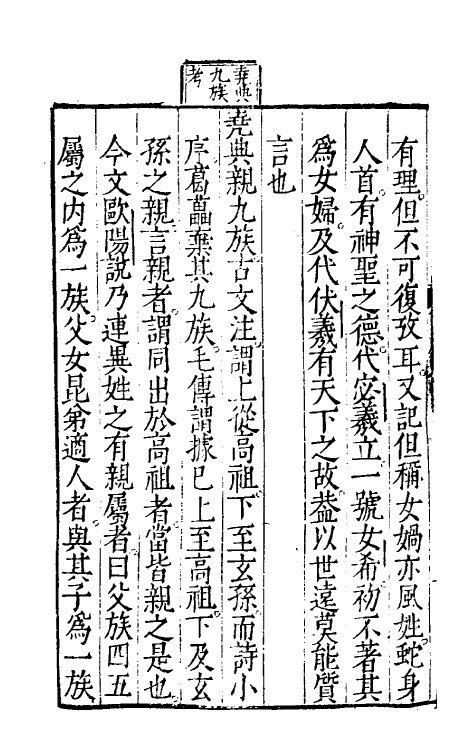 堯典
九族
考
有理但不可復攷耳又記但稱女媧亦風姓蛇身
人首有神聖之德代宓羲立一號女希初不著其
爲女婦及代伏羲有天下之故葢以世遠莫能質
言也
堯典親九族古文注謂上從高祖下至玄孫而詩小
序葛藟棄其九族毛傳謂據已上至高祖下及玄
孫之親言親者謂同出於高祖者當皆親之是也
今文歐陽說乃連異姓之有親屬者曰父族四五
屬之内爲一族父女昆弟適人者與其子爲一族